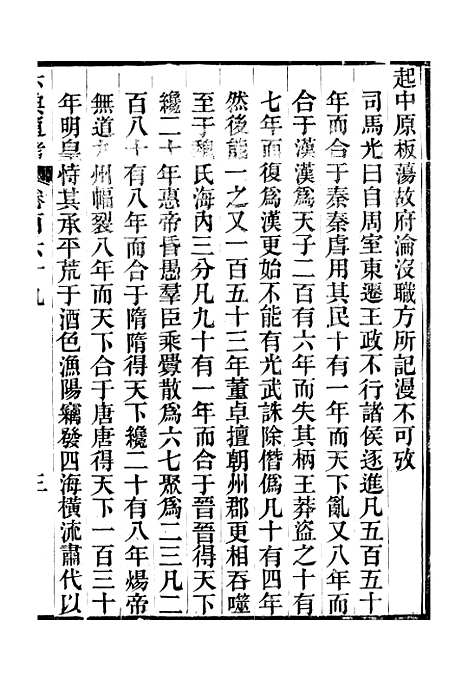 起中原板蕩故府淪沒職方所記漫不可攷
司馬光曰自周室東遷王政不行諸侯逐進凡五百五十
年而合于秦秦虐用其民十有一年而天下亂又八年而
合于漢漢爲天子二百有六年而失其柄王莽盜之十有
七年而復爲漢更始不能有光武誅除僭僞凡十有四年
然後能一之又一百五十三年董卓擅朝州郡更相吞噬
至于魏氏海內三分凡九十有一年而合于晉晉得天下
纔二十年惠帝昏愚羣臣乘釁散爲六七聚爲二三凡二
百八十有八年而合于隋隋得天下纔二十有八年煬帝
無道九州幅裂八年而天下合于唐唐得天下一百三十
年明皇恃其承平荒于酒色漁陽竊發四海橫流肅代以
六典通考 卷百六十九 三